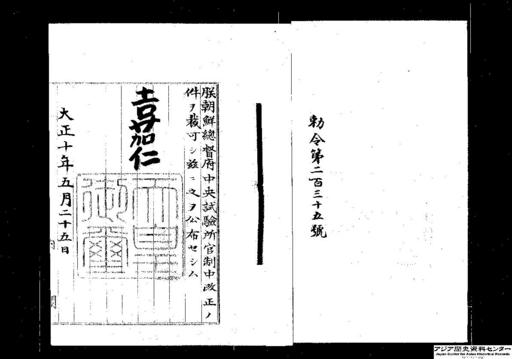 勅令第二百三十五號
朕朝鮮總督府中央試驗所官制中改正ノ
件ヲ裁可シ茲ニ之ヲ公布セシム
嘉仁
天皇御璽
大正十年五月二十五日
アジア歴史資料センター
Japan Center for Asian Historical Records